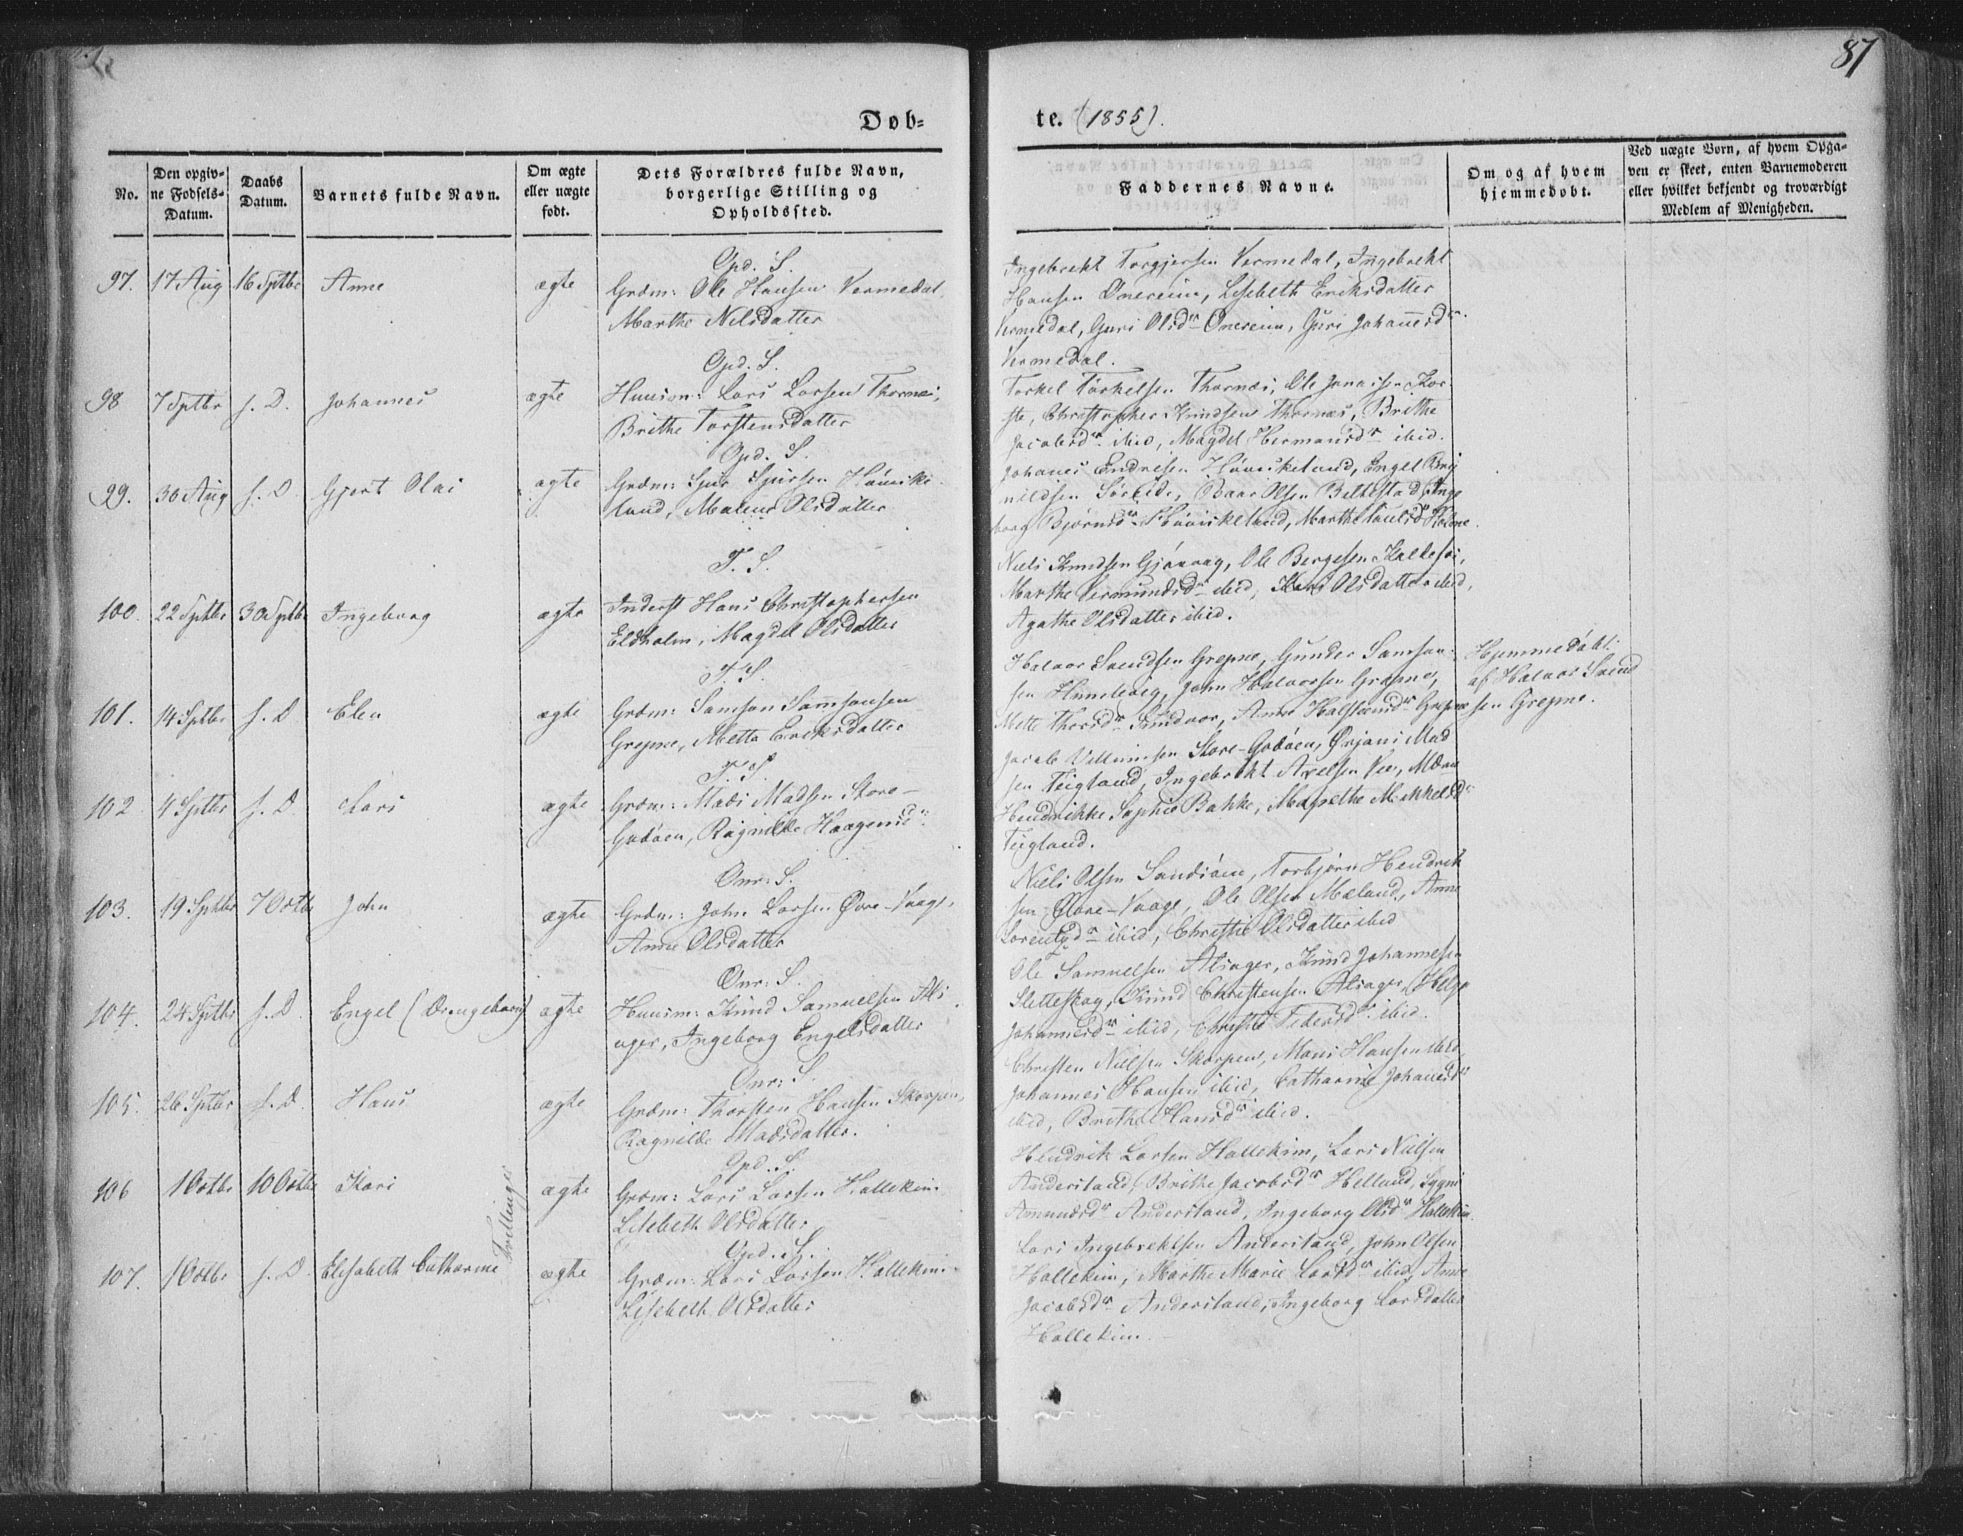 87
Døb-
te. (1855).
No.
Den opgiv-
ne Fødsels-
Datum.
Daabs
Datum.
Barnets fulde Navn.
Om ægte
eller uægte
født.
Dets Forældres fulde Navn,
borgerlige Stilling og
Opholdssted.
Faddernes Navne.
Om og af hvem
hjemmedøbt.
Ved uægte Børn, af hvem Opga-
ven er skeet, enten Barnemoderen
eller hvilket bekjendt og troværdigt
Medlem af Menigheden.
97. 17 Aug 16 Sptbr Anne ægte
Opd. S.
Grdm: Ole Hansen Vermedal,
Marthe Nilsdatter
Ingebrekt Torgjersen Vermedal, Ingebrekt
Hansen Onereim, Lisebeth Eriksdatter
Vermedal, Guri Olsdr Onereim, Guri Johannesdr
Vermedal.
98 7 Sptbr s. D. Johannes ægte
Opd. S.
Huusm: Lars Larsen Thornæs,
Brithe Torstensdatter
Torkel Torkelsen Thornæs, Ole Jonassen Kor-
sto, Christopher Knudsen Thornæs, Brithe
Jacobsdr ibid, Magdel Hermansdr ibid.
99. 30 Aug s. D Gjert Olai ægte
Opd. S.
Grdm: Sjur Sjursen Høviske-
land, Malene Olsdatter
Johanes Endresen Høviskeland, Engel Bryn-
nildsen Sørlide, Baar Olsen Beltestad, Inge-
borg Bjørnsdr Høviskeland, Marthe Paulsdr Holme.
100. 22 Sptbr 30 Sptbr Ingeborg ægte
T. S.
Inderst Hans Christophersen
Eldholm, Magdel Olsdatter
Niels Knudsen Gjønvag, Ole Børgesen
Marthe Vermundsdr ibid, Kari Olsdatter ibid,
Agathe Olsdatter ibid.
101. 14 Sptbr s. D Elen ægte
T. S.
Grdm: Samson Samsonsen
Grepne, Metta Eriksdatter
Halvor Svendsen Grepne, Gunder Samson-
sen Himleberg, John Halvorsen Grepne,
Mette Thorsdr Anne Halsteinsdr Grepne
Hjemmedøbt
af Halvor Svend-
sen Grepne.
102. 4 Sptbr s. D Lars ægte
T. S.
Grdm: Mads Madsen Store-
Godøen, Ragnilde Haagensdr
Jacob Villumsen Store-Godøen, Ørjans Mad-
sen Teigland, Ingebrekt Axelsen Vee, Maren
Hendrikke Sophie Bakke, Margrethe Mikkelsdr
Teigland.
103. 19 Sptbr 7 Octbr John ægte
Onr: S.
Grdm: John Larsen Øvre-Vaage,
Anne Olsdatter
Niels Olsen Torbjørn Hendrik-
sen Øvre-Vaage, Ole Olsen Mæland, Anne
Lorentzdr ibid, Christie Olsdatter ibid
104. 24 Sptbr s. D. Engel (Drengebarn) ægte
Onr: S.
Huusm: Knud Samuelsen Als-
ager, Ingeborg Engelsdatter
Ole Samuelsen Alsager, Knud Johannesen
Sletteskog, Knud Christensen Alsager, Helga
Johannesdr ibid, Christie ibid.
105. 26 Sptbr s. D. Hans ægte
Onr: S.
Grdm: Thorsten Hansen Skorpen,
Ragnilde Madsdatter.
Christen Nielsen Skorpen, Mons Hansen ibid,
Johannes Hansen ibid, Catharine Johansdr
ibid, Brithe Hansdr ibid.
106 1 Octbr 10 Octbr Kari ægte
Tvillinger
Opd. S.
Grdm: Lars Larsen Hallekim
Lisebeth Olsdatter
Hendrik Larsen Hallekim, Lars Nielsen
Anderstand, Brithe Jacobsdr Helland, Sygni
Amundsdr Anderstand, Ingeborg Olsdr Hallekim.
107. 1 Octbr s. D. Elisabeth Catharine ægte
Opd. S.
Grdm: Lars Larsen Hallekim.
Lisebeth Olsdatter
Lars Ingebrektsen Anderstand, John Olsen
Hallekim, Marthe Marie Larsdr ibid, Anne
Jacobsdr Anderstand, Ingeborg Larsdatter
Hallekim.